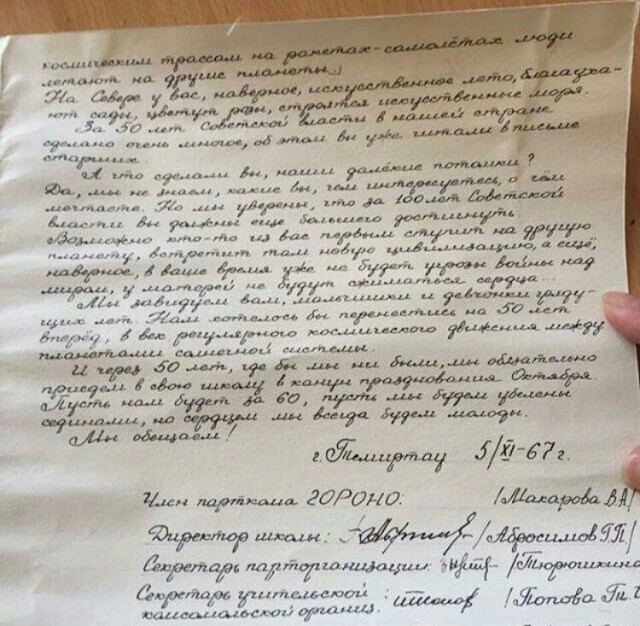 космическим трассам на ракетах-самолётах люди
летают на другие планеты.
На Севере у вас, наверное, искусственное лето, благоуха-
ют сады, цветут розы, строятся искусственные моря.
За 50 лет Советской власти в нашей стране
сделано очень многое, об этом вы уже читали в письме
старших.
А что сделали вы, наши далёкие потомки?
Да, мы не знаем, какие вы, чем интересуетесь, о чём
мечтаете. Но мы уверены, что за 100 лет Советской
власти вы должны еще большего достигнуть.
Возможно кто-то из вас первым ступит на другую
планету, встретит там новую цивилизацию, а ещё,
наверное, в ваше время уже не будет угрозы войны над
миром, у матерей не будут сжиматься сердца...
Мы завидуем вам, мальчишки и девчонки гряду-
щих лет. Нам хотелось бы перенестись на 50 лет
вперёд, в век регулярного космического движения между
планетами солнечной системы.
И через 50 лет, где бы мы ни были, мы обязательно
приедем в свою школу в канун празднования Октября.
Пусть нам будет за 60, пусть мы будем убелены
сединами, но сердцем мы всегда будем молоды.
Мы обещаем!
г. Темиртау 5/XI-67 г.
Член парткома ГОРОНО: /Макарова В.А/
Директор школы: /Абросимов Г.П./
Секретарь парторганизации: /Тюрюшкина
Секретарь учительской : /Попова
комсомольской организ.